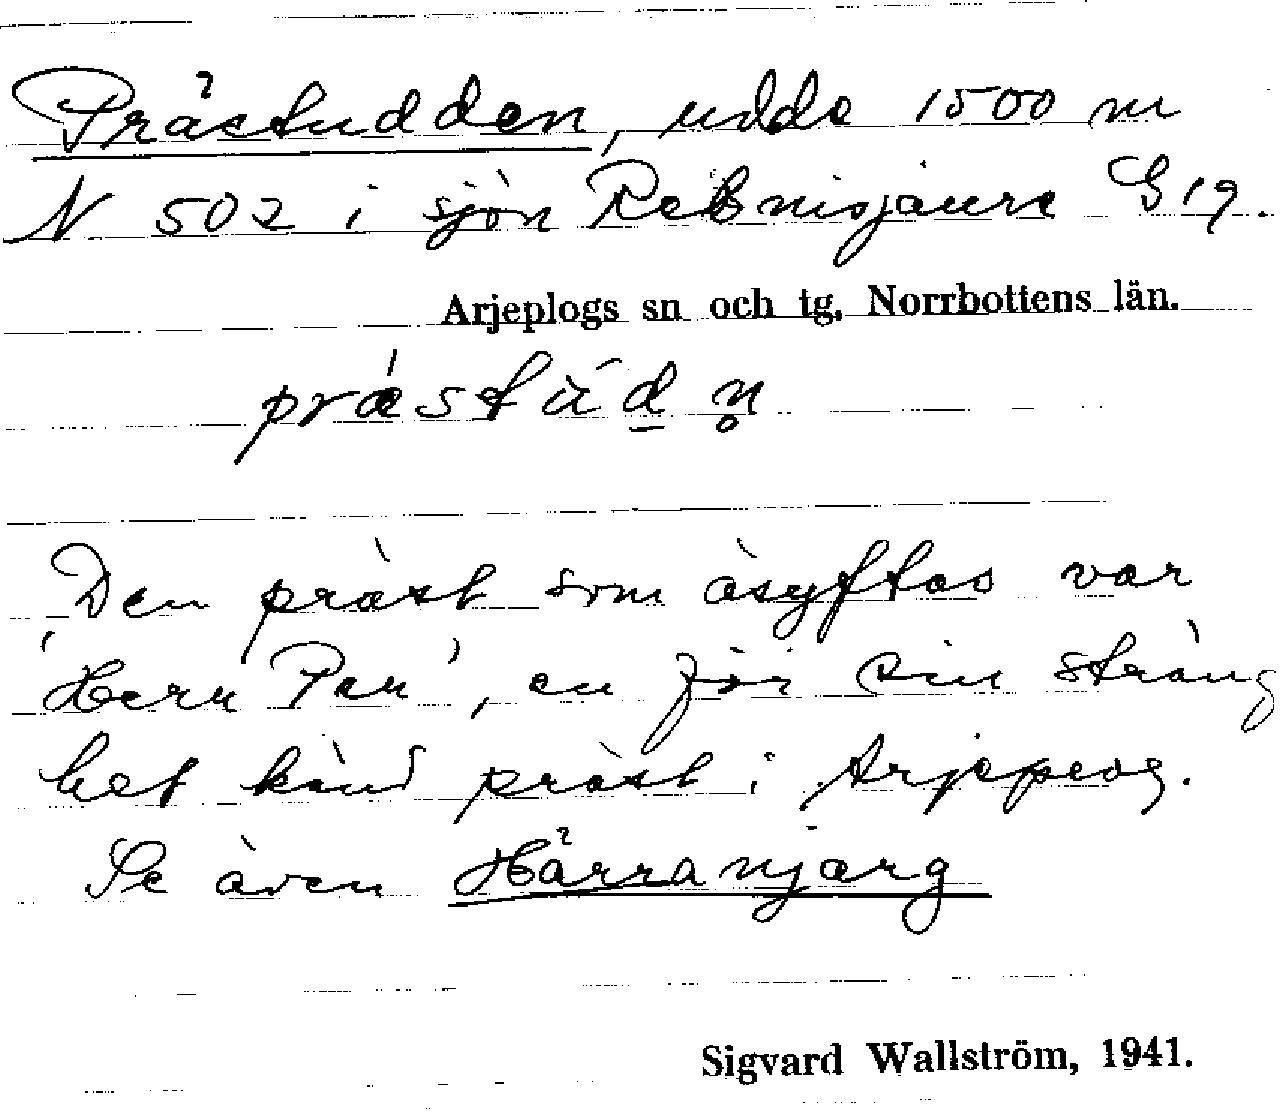 Prästudden, udde 1500 m
N 502 i sjön Rebnisjaure G19.
Arjeplogs sn och tg, Norrbottens län.
præstùd̲n̥
Den präst som åsyftas var
'Herr Per', en för sin sträng
het känd präst i Arjeplog.
Se även Härranjarg
Sigvard Wallström, 1941.